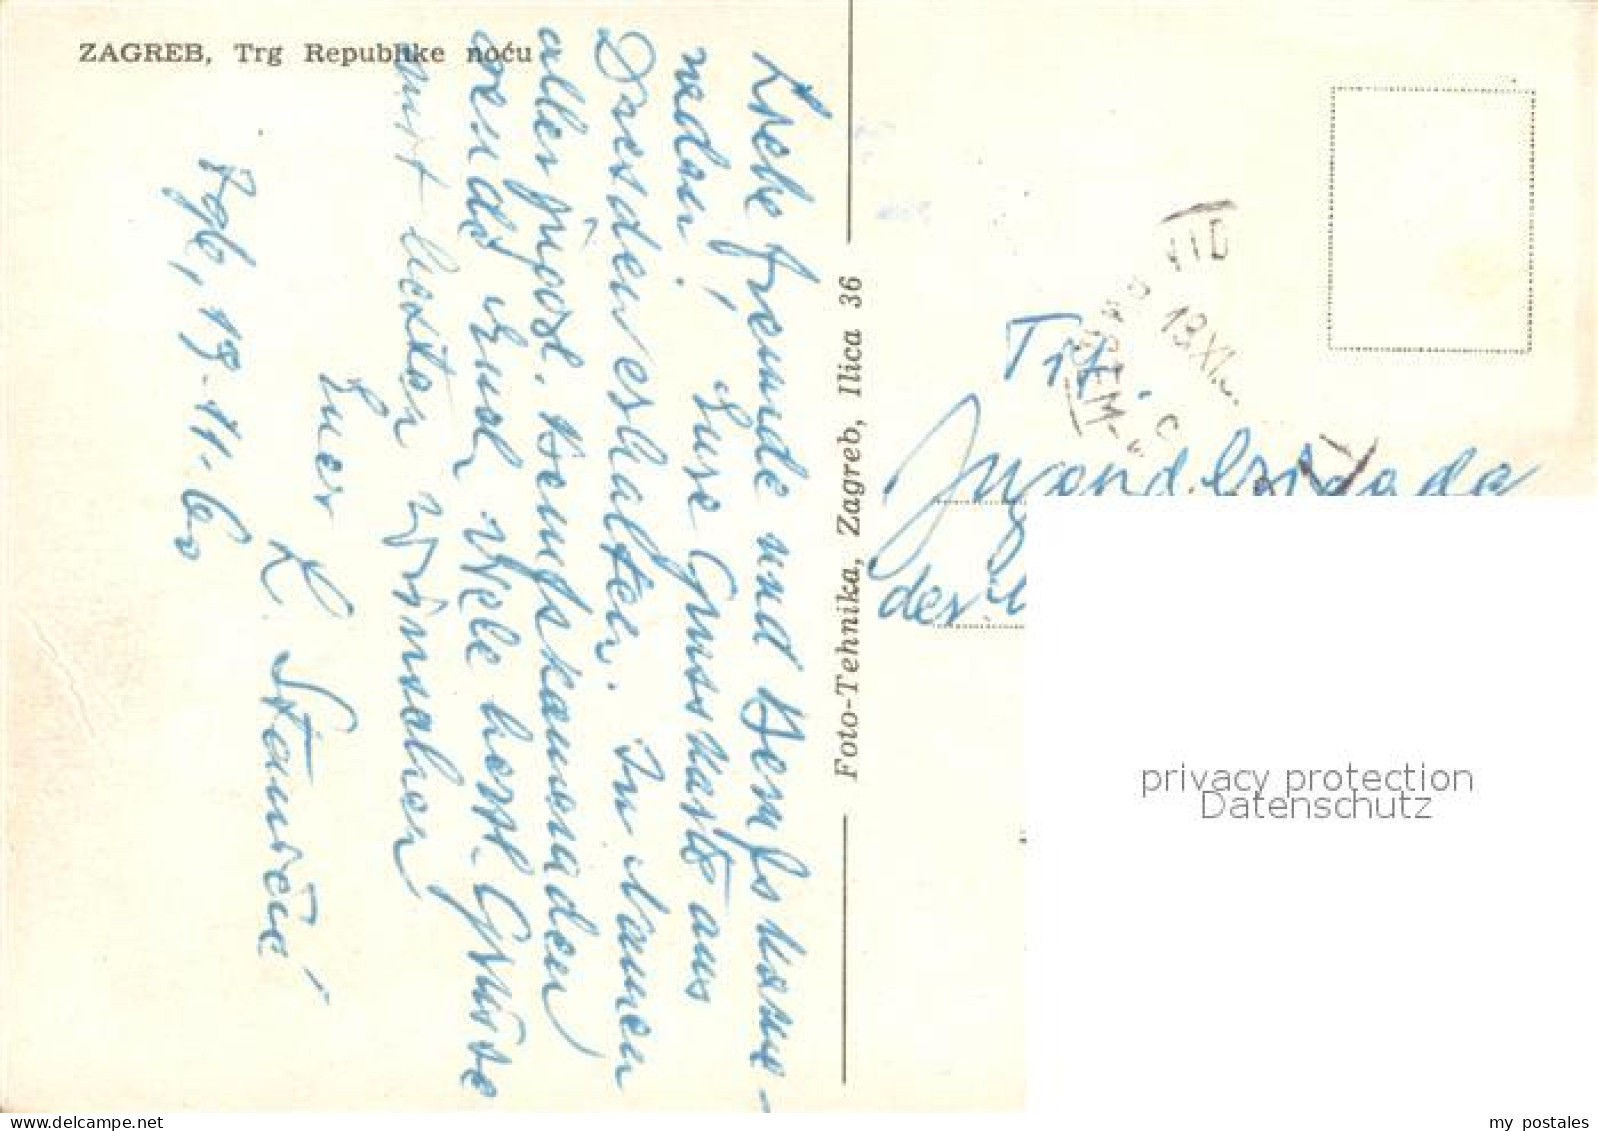 ZAGREB, Trg Republike noću
Liebe Freunde und Berufskame-
raden! Eure Grusskarte aus
Dresden erhalten. Im Namen
aller Berufskameraden
sende Euch viele herzl. Grüsse
mit besten Wünschen
Euer
K. Stančić
Zgb, 13-11-60
Foto-Tehnika, Zagreb, Ilica 36
13.XI.
Tit.
Jugendbrigade
des
privacy protection
Datenschutz
delcampe.net
my_postales